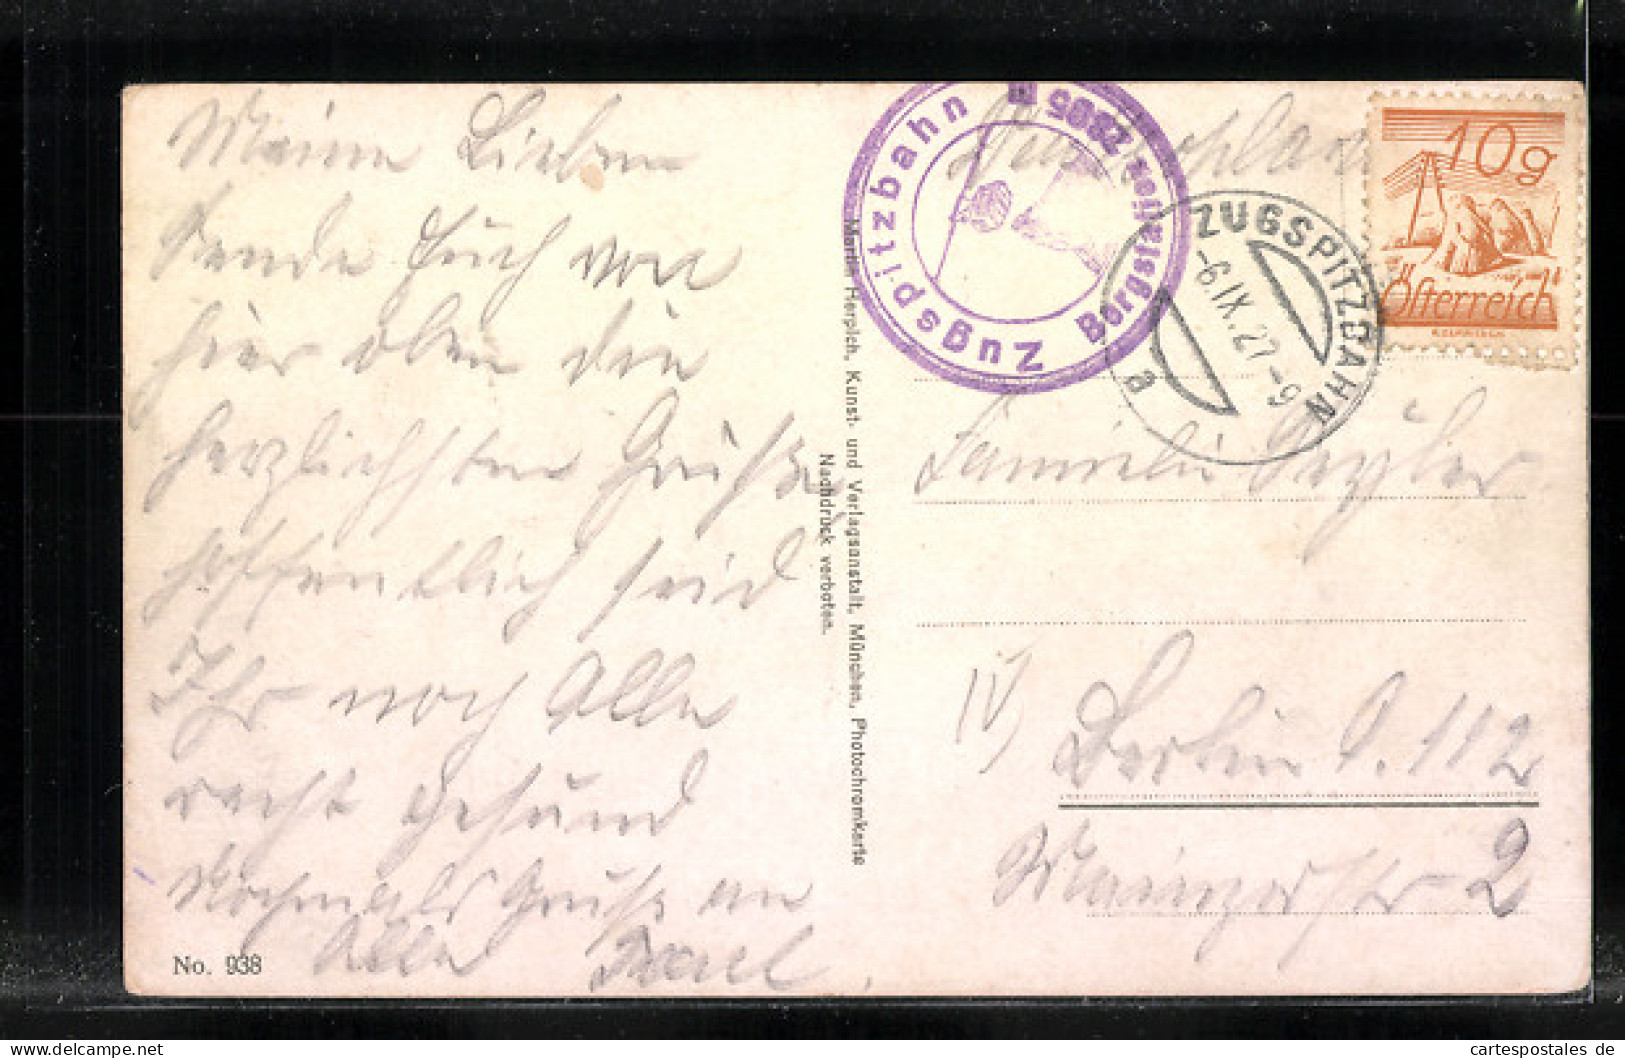 Meine Lieben
Sende Euch von
hier oben die
herzlichsten Grüße
hoffentlich seid
Ihr noch Alle
recht gesund
Nochmals Gruß an
Alle
No. 938
Martin Herpich, Kunst- und Verlagsanstalt, München, Photochromkarte
Nachdruck verboten.
Zugspitzbahn Bergstation 2805 m
ZUGSPITZBAHN
-6.IX.27-9
a
10g
Österreich
Familie
IV
Berlin O. 112
Mainzerstr 2
cartespostales de